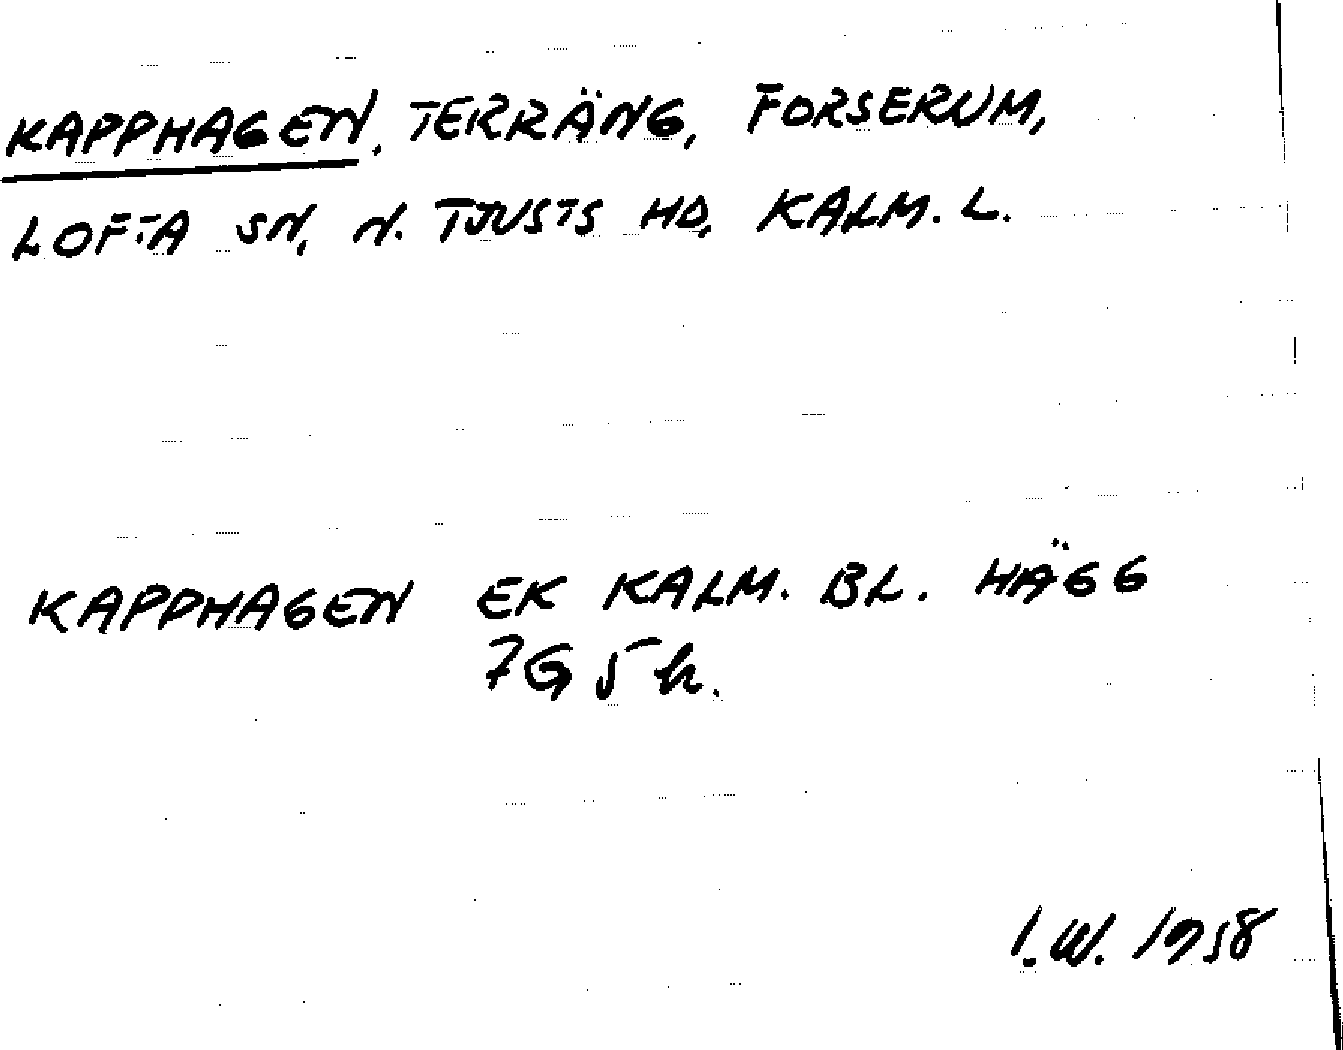 KAPPHAGEN, TERRÄNG, FORSERUM,
LOFTA SN, N. TJUSTS HD, KALM. L.
KAPPHAGEN EK KALM. BL. HÄGG
7G 5h.
I.W. 1958